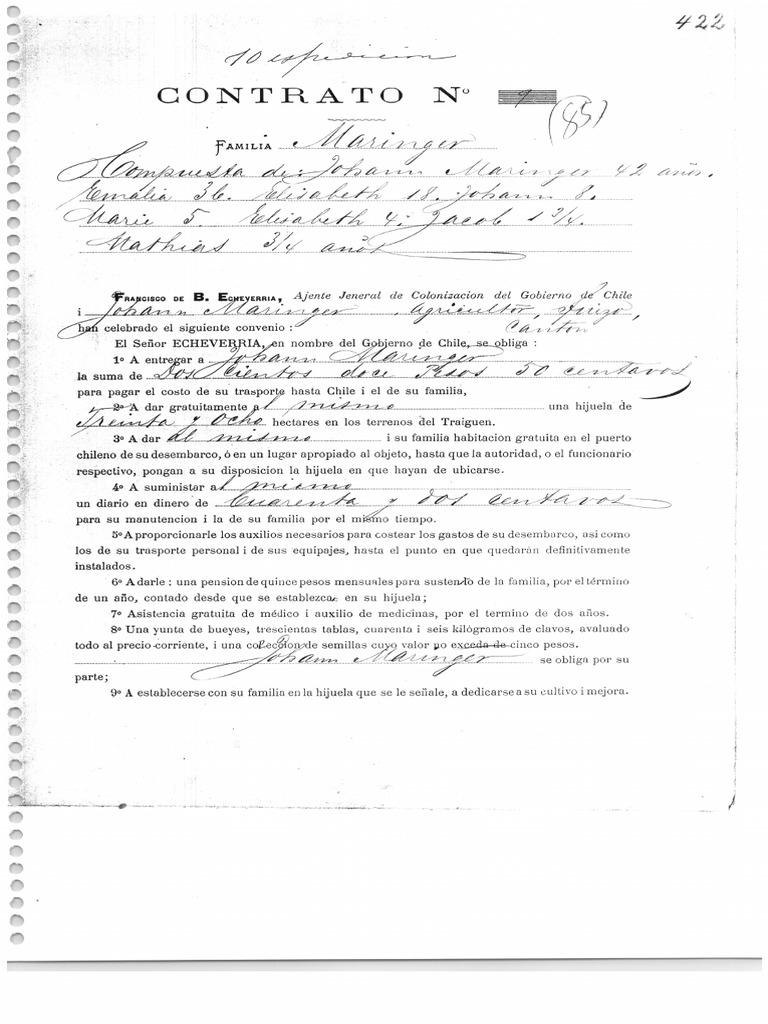 422
10 espedicion
CONTRATO Nº 9
(85)
FAMILIA Maringer
Compuesta de: Johann Maringer 42 años.
Emalia 36. Elisabeth 18. Johann 8.
Marie 5. Elisabeth 4. Jacob 1 3/4.
Mathias 3/4 años
FRANCISCO DE B. ECHEVERRIA, Ajente Jeneral de Colonizacion del Gobierno de Chile
i Johann Maringer, Agricultor, Suizo,
han celebrado el siguiente convenio : Canton
El Señor ECHEVERRIA, en nombre del Gobierno de Chile, se obliga :
1º A entregar a Johann Maringer
la suma de Dos cientos doce Pesos 50 centavos
para pagar el costo de su trasporte hasta Chile i el de su familia,
2º A dar gratuitamente al mismo una hijuela de
Treinta y Ocho hectares en los terrenos del Traiguen.
3º A dar al mismo i su familia habitacion gratuita en el puerto
chileno de su desembarco, ó en un lugar apropiado al objeto, hasta que la autoridad, o el funcionario
respectivo, pongan a su disposicion la hijuela en que hayan de ubicarse.
4º A suministar al mismo
un diario en dinero de Cuarenta y dos centavos
para su manutencion i la de su familia por el mismo tiempo.
5º A proporcionarle los auxilios necesarios para costear los gastos de su desembarco, asi como
los de su trasporte personal i de sus equipajes, hasta el punto en que quedarán definitivamente
instalados.
6º A darle : una pension de quince pesos mensuales para sustento de la familia, por el término
de un año, contado desde que se establezca en su hijuela;
7º Asistencia gratuita de médico i auxilio de medicinas, por el termino de dos años.
8º Una yunta de bueyes, trescientas tablas, cuarenta i seis kilógramos de clavos, avaluado
todo al precio corriente, i una coleccion de semillas cuyo valor no exceda de cinco pesos.
Johann Maringer se obliga por su
parte;
9º A establecerse con su familia en la hijuela que se le señale, a dedicarse a su cultivo i mejora.